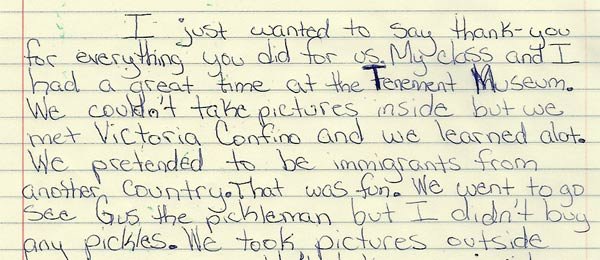 I just wanted to say thank-you
for everything you did for us. My class and I
had a great time at the Tenement Museum.
We couldn't take pictures inside but we
met Victoria Confino and we learned alot.
We pretended to be immigrants from
another country. That was fun. We went to go
see Gus the pickleman but I didn't buy
any pickles. We took pictures outside